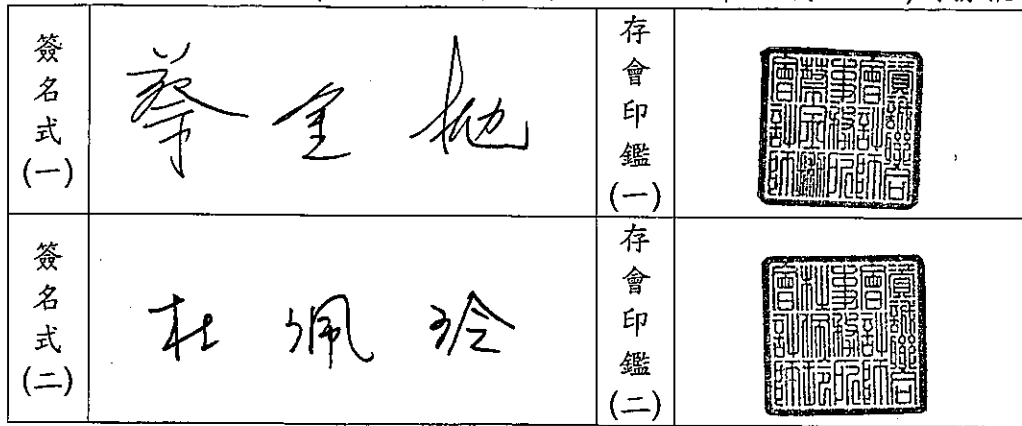 簽名式(一)
蔡金拋
存會印鑑(一)
資誠聯合
會計師
事務所
蔡金拋
會計師
簽名式(二)
杜佩玲
存會印鑑(二)
資誠聯合
會計師
事務所
杜佩玲
會計師